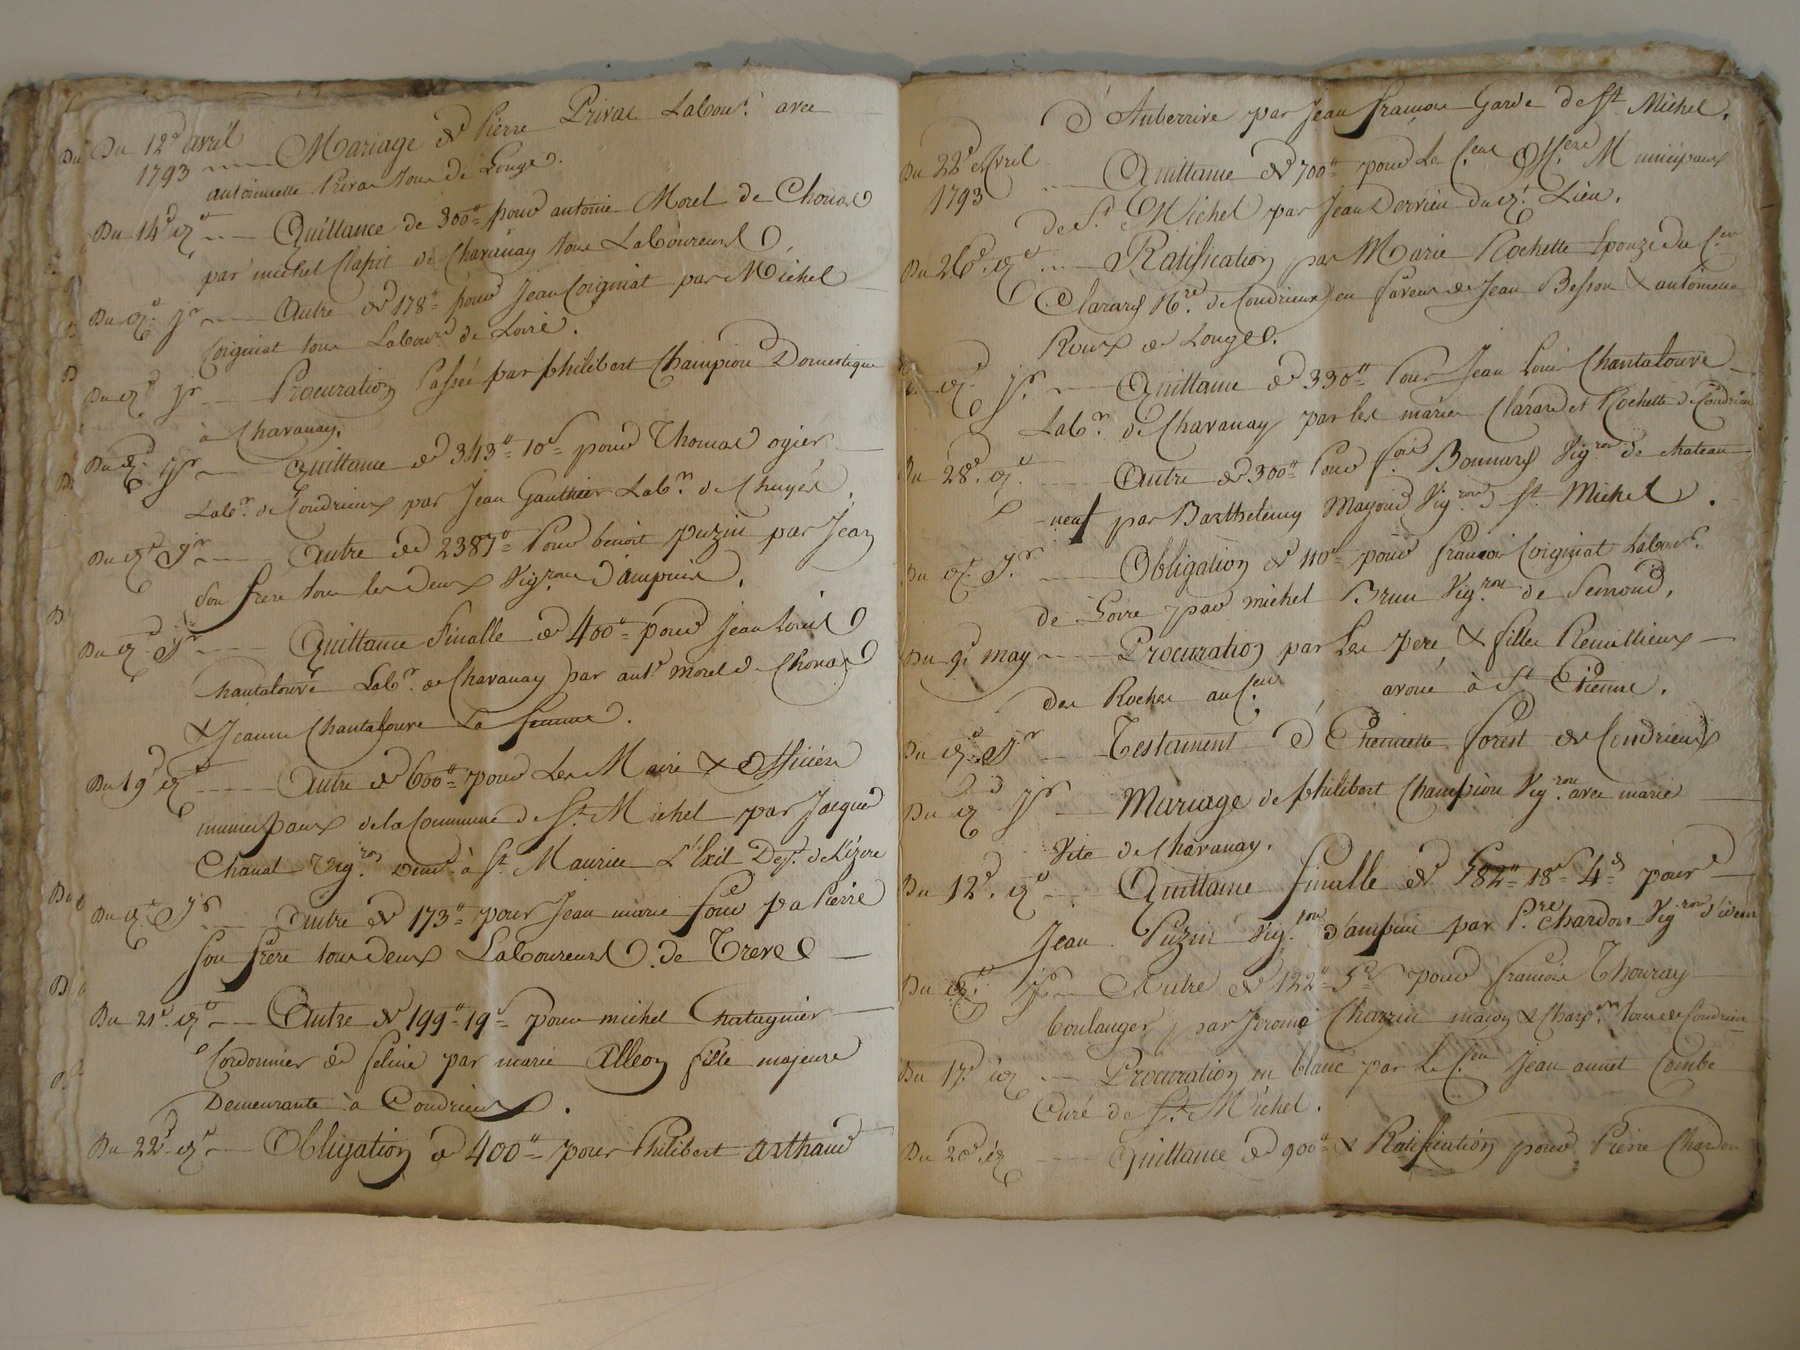 Du 12e avril
1793 ---- Mariage de Pierre Privas Labour. avec
antoinette Privas tous de Longe.
Du 14e dt ---- Quittance de 300# pour antoine Morel de Chonas
par michel Clapit de Chavanay tous Laboureurs
Du dt jr ---- Autre de 178# pour Jean Coigniat par Michel
Coigniat tous Labours de Loire.
Du dt jr ---- Procuration Passée par philibert Champion Domestique
à Chavanay.
Du dt jr ---- quittance de 343# 10s pour Thomas ogier
Labr. de Condrieux par Jean Gauthier Labr. de Chuyes.
Du dt jr ---- autre de 2387# Pour benoit puzin par Jean
Son frere tous les deux Vigrons d'ampuis.
Du dt jr ---- Quittance finalle de 400# pour Jean Louis
Chantalouve Labr. de Chavanay par ant. morel de Chonas
& Jeanne Chantalouve Sa femme.
Du 19e dt ---- Autre de 600# pour Les Maire & Officiers
municipaux de la Commune de St. Michel par Jacques
Chaval Vigron Demt. à St. Maurice L'Exil Dept. de l'izere
Du dt jr ---- autre de 173# pour Jean marie fond pa Pierre
Son frere tous deux Laboureurs de Treves
Du 21e dt ---- Autre de 199# 19s pour michel Chatagnier
Cordonnier de pelins par marie Alleon fille majeure
Demeurante à Condrieux.
Du 22e dt ---- Obligation de 400# pour Philibert arthaud
d'Auberrive par Jean françois Garde de St Michel.
Du 22e Avril
1793 ---- Quittance de 700# pour Les Cens Offers Municipaux
de St Michel par Jean Dervieu du dt. Lieu.
Du 26e dt ---- Ratification par Marie Rochette Epouze du Cen
Clarard Nre. de Condrieux en faveur de Jean Besson & antoinette
Roux de Longes.
dt jr ---- Quittance de 330# Pour Jean Louis Chantalouve
Labr. de Chavanay par les mariés Clarard et Rochette de Condrieu
Du 28e dt ---- Autre de 300# Pour Bonnard Vigron de chateau
neuf par Barthelemy Mayoud Vigron de St Michel.
Du dt jr ---- Obligation de 110# pour françois Coigniat Labour.
de Loire par michel Brun Vigron de Semond.
Du 9e may ---- Procuration par Les Pere & filles Remillieux
des Roches au Cen avoué à St Etienne.
Du dt jr ---- Testament d'Etiennette forest de Condrieux
Du dt jr ---- Mariage de philibert Champion Vigron avec marie
Vite de Chavanay.
Du 12e dt ---- Quittance finalle de 582# 18s 4d pour
Jean Puzin Vigron d'ampuis par Pre chardon Vigron d'idem
Du dt jr ---- Autre de 122# 5s pour françois Thouray
boulanger par Jerome Chazein maçon & Charpr tous de Condrieu
Du 17e dt ---- Procuration en blanc par Le Cen Jean annet Combe
Curé de St Michel.
Du 20e dt ---- Quittance de 900# & Ratification pour Pierre Chardon